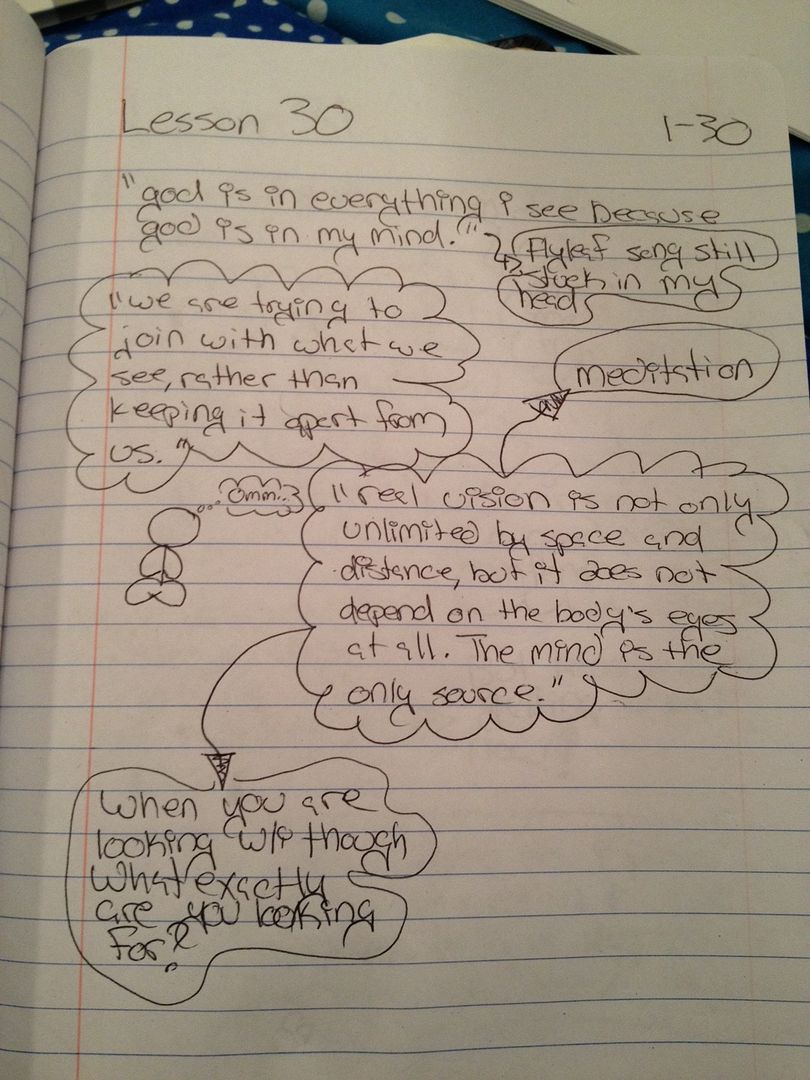 Lesson 30
1-30
"god is in everything i see because
god is in my mind."
Flyleaf song still
stuck in my
head
"we are trying to
join with what we
see, rather than
keeping it apart from
us."
meditation
omm..
"real vision is not only
unlimited by space and
distance, but it does not
depend on the body's eyes
at all. The mind is the
only source."
When you are
looking w/i though
what exactly
are you looking
for?